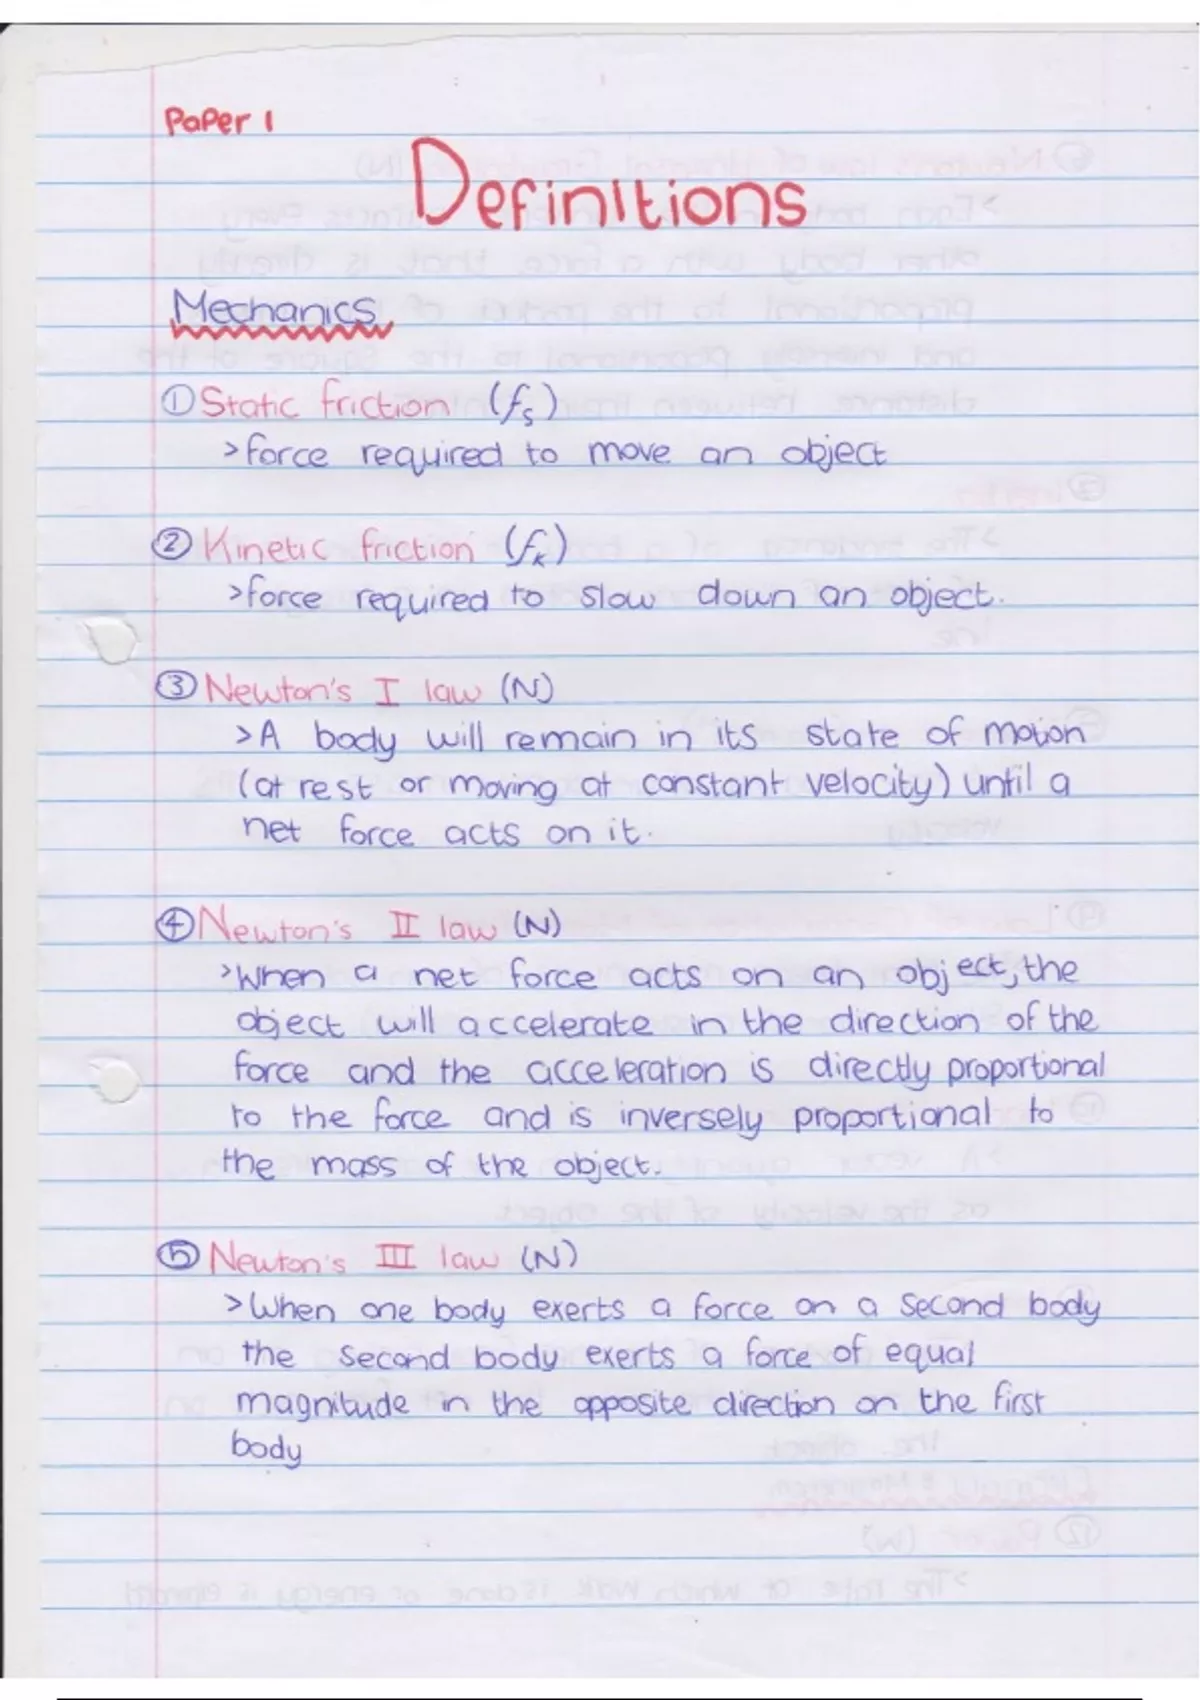 Paper 1
Definitions
Mechanics
① Static friction (fs)
> force required to move an object
② Kinetic friction (fk)
> force required to slow down an object.
③ Newton's I law (N)
> A body will remain in its state of motion
(at rest or moving at constant velocity) until a
net force acts on it.
④ Newton's II law (N)
> When a net force acts on an object, the
object will accelerate in the direction of the
force and the acceleration is directly proportional
to the force and is inversely proportional to
the mass of the object.
⑤ Newton's III law (N)
> When one body exerts a force on a second body
the second body exerts a force of equal
magnitude in the opposite direction on the first
body